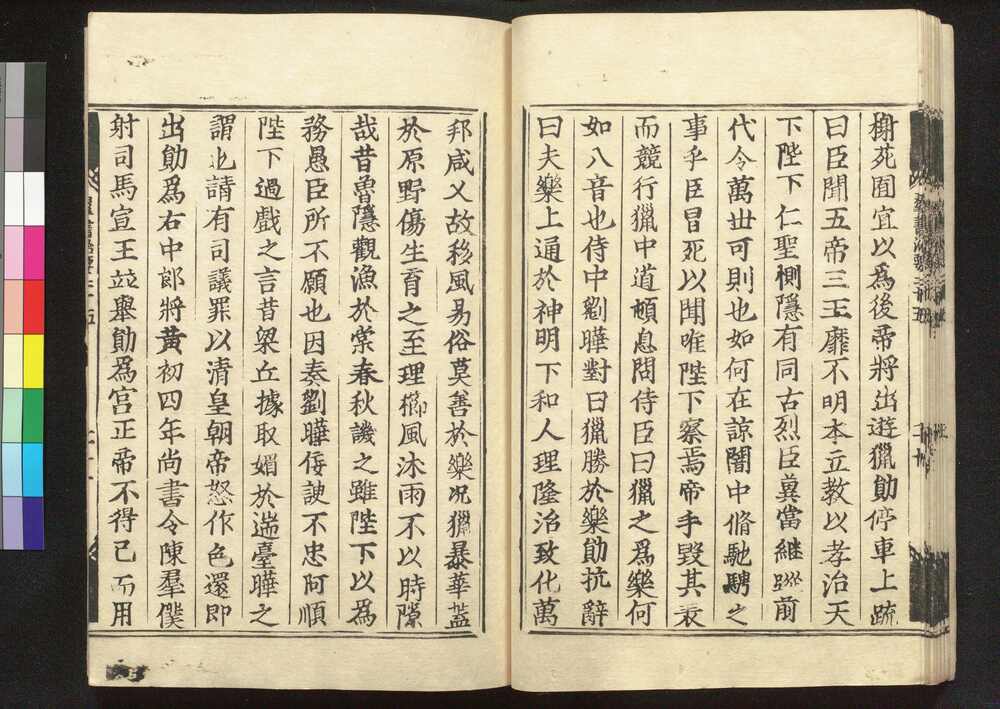 榭苑囿宜以爲後帝將出遊獵勛停車上疏
曰臣聞五帝三王靡不明本立教以孝治天
下陛下仁聖惻隱有同古烈臣冀當繼蹤前
代令萬世可則也如何在諒闇中脩馳騁之
事乎臣冒死以聞唯陛下察焉帝手毀其表
而競行獵中道頓息問侍臣曰獵之爲樂何
如八音也侍中劉曄對曰獵勝於樂勛抗辭
曰夫樂上通於神明下和人理隆治致化萬
邦咸乂故移風易俗莫善於樂況獵暴華蓋
於原野傷生育之至理櫛風沐雨不以時隙
哉昔魯隱觀漁於棠春秋譏之雖陛下以爲
務愚臣所不願也因奏劉曄佞諛不忠阿順
陛下過戲之言昔梁丘據取媚於遄臺曄之
謂也請有司議罪以清皇朝帝怒作色還即
出勛爲右中郎將黃初四年尚書令陳羣僕
射司馬宣王並舉勛爲宮正帝不得已而用